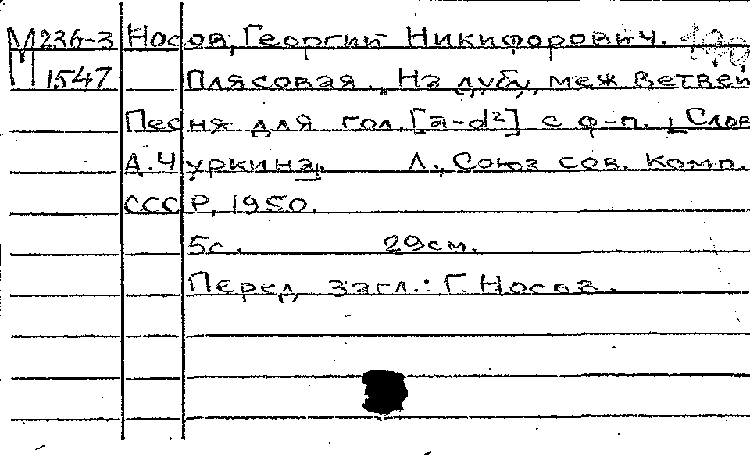 М236-3 Носов, Георгий Никифорович.
М1547 Плясовая. На дубу, меж ветвей
Песня для гол. [a-d²] с ф-п. [Слов
А. Чуркина]. Л., Союз сов. комп.
СССР, 1950.
5с. 29см.
Перед загл.: Г. Носов.